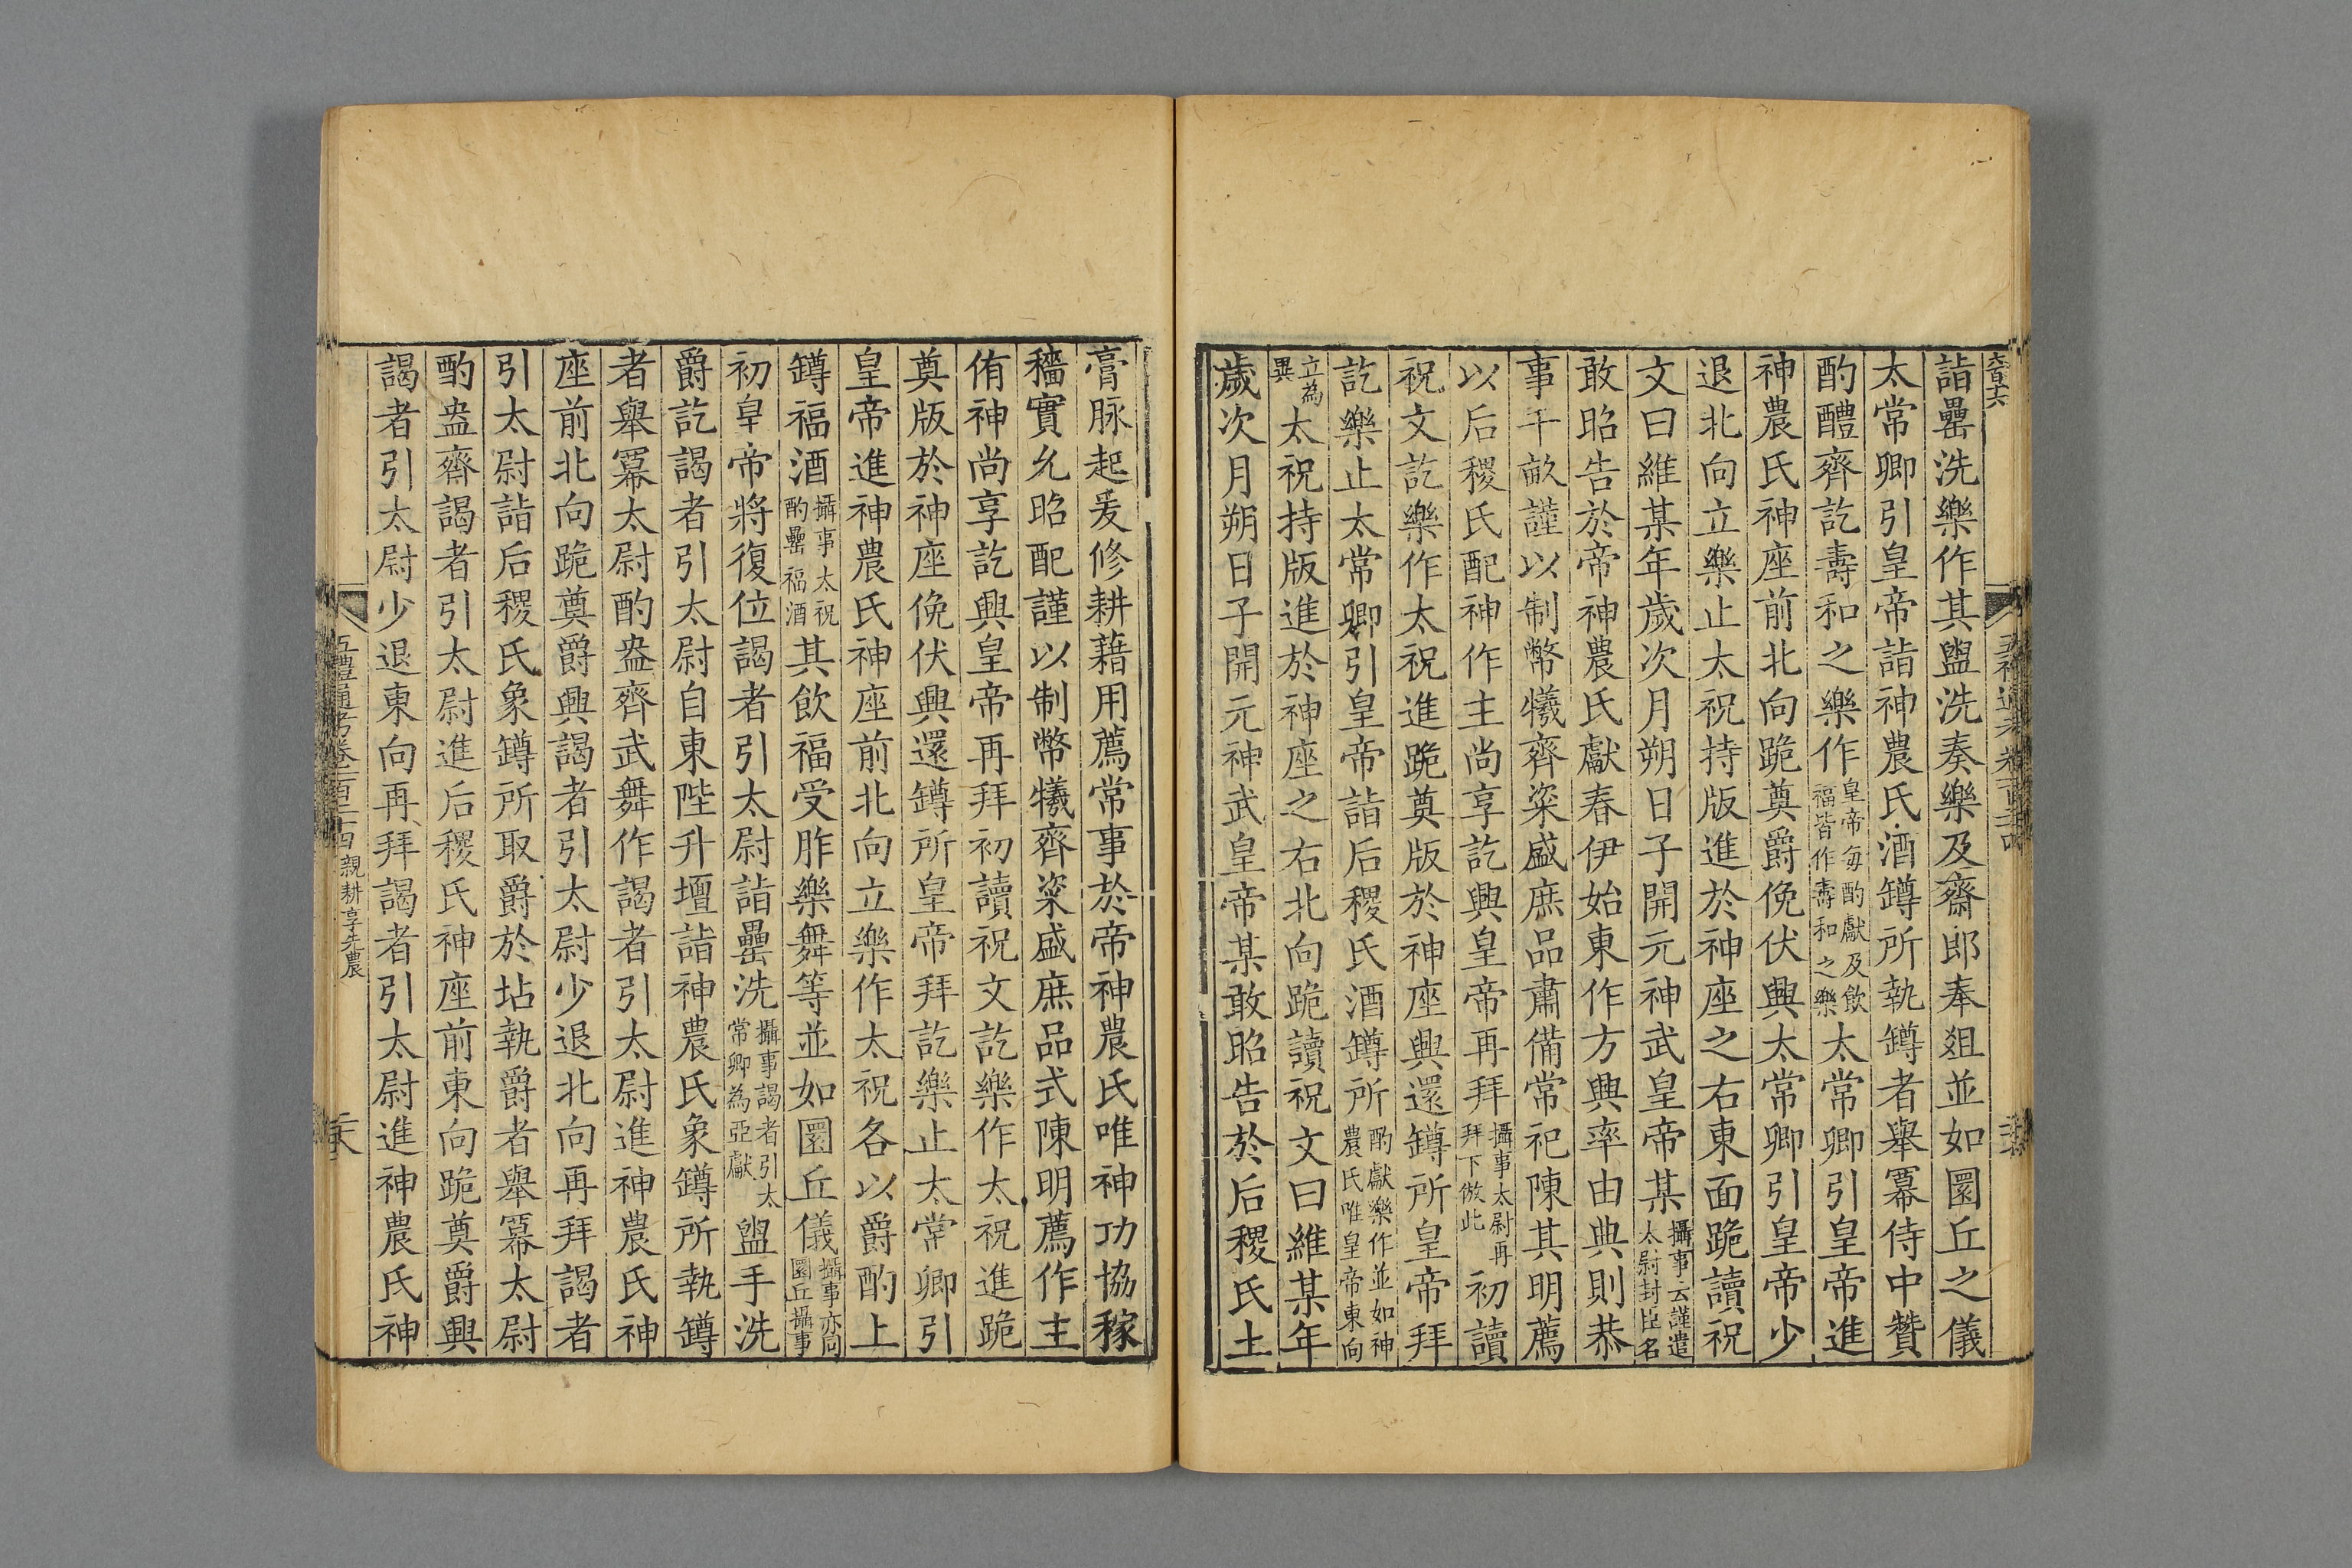 詣罍洗樂作其盥洗奏樂及齋郎奉俎並如圜丘之儀
太常卿引皇帝詣神農氏酒罇所執罇者舉冪侍中贊
酌醴齊訖壽和之樂作皇帝每酌獻及飲福皆作壽和之樂太常卿引皇帝進
神農氏神座前北向跪奠爵俛伏興太常卿引皇帝少
退北向立樂止太祝持版進於神座之右東面跪讀祝
文曰維某年歲次月朔日子開元神武皇帝某攝事云謹遣太尉封臣名
敢昭告於帝神農氏獻春伊始東作方興率由典則恭
事千畝謹以制幣犧齊粢盛庶品肅備常祀陳其明薦
以后稷氏配神作主尚享訖興皇帝再拜攝事太尉再拜下倣此初讀
祝文訖樂作太祝進跪奠版於神座興還罇所皇帝拜
訖樂止太常卿引皇帝詣后稷氏酒罇所酌獻樂作並如神農氏唯皇帝東向
立為異太祝持版進於神座之右北向跪讀祝文曰維某年
歲次月朔日子開元神武皇帝某敢昭告於后稷氏土
膏脉起爰修耕藉用薦常事於帝神農氏唯神功協稼
穡實允昭配謹以制幣犧齊粢盛庶品式陳明薦作主
侑神尚享訖興皇帝再拜初讀祝文訖樂作太祝進跪
奠版於神座俛伏興還罇所皇帝拜訖樂止太常卿引
皇帝進神農氏神座前北向立樂作太祝各以爵酌上
罇福酒攝事太祝酌罍福酒其飲福受胙樂舞等並如圜丘儀攝事亦同圜丘攝事
初皇帝將復位謁者引太尉詣罍洗攝事謁者引太常卿為亞獻盥手洗
爵訖謁者引太尉自東陛升壇詣神農氏象罇所執罇
者舉冪太尉酌盎齊武舞作謁者引太尉進神農氏神
座前北向跪奠爵興謁者引太尉少退北向再拜謁者
引太尉詣后稷氏象罇所取爵於坫執爵者舉冪太尉
酌盎齊謁者引太尉進后稷氏神座前東向跪奠爵興
謁者引太尉少退東向再拜謁者引太尉進神農氏神
五禮通考卷一百二十四 親耕享先農